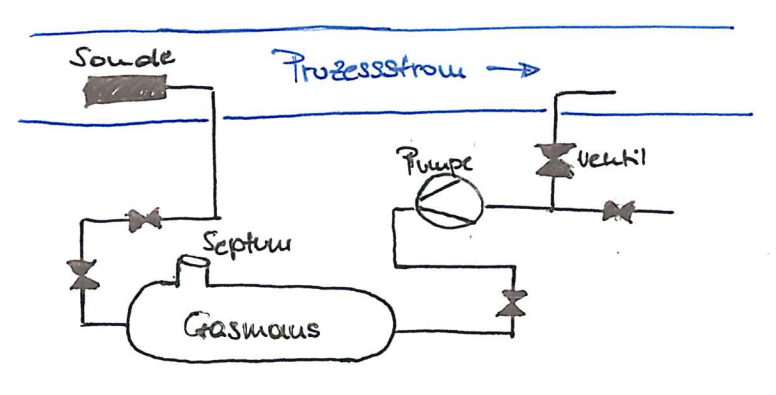 Sonde
Prozessstrom
Pumpe
Ventil
Septum
Gasmaus